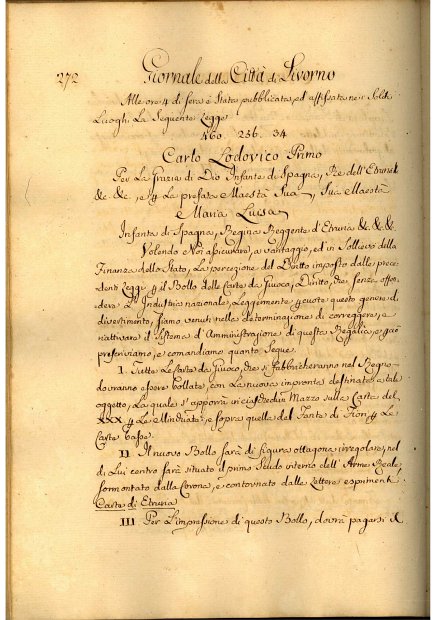 272 Giornale della Città di Livorno
Alle ore 4 di sera è stata pubblicata, ed affissata nei Soliti
Luoghi La Seguente Legge
460. 256. 34
Carlo Lodovico Primo
Per La Grazia di Dio Infante di Spagna, Re dell'Etruria
&c. &c., e p La prefata Maestà Sua, Sua Maestà
Maria Luisa
Infanta di Spagna, Regina Reggente d'Etruria &c. &c. &c.
Volendo Noi assicurare, a vantaggio, ed in Sollievo della
Finanza dello Stato, La percezione del Diritto imposto dalle prece
denti Leggi p il Bollo delle Carte da Giuoco, Diritto, che senza offen
dere L'Industria nazionale, Leggermente percuote questo genere di
divertimento, Siamo venuti nella determinazione di correggere, e
riattivare il Sistema d'Amministrazione di questa Regalia, e
prescriviamo, e comandiamo quanto Segue.
I. Tutte Le Carte da Giuoco, che si fabbricheranno nel Regno
dovranno essere bollate, con La nuova impronta destinata a tale
oggetto, La quale s'apporrà in ciaschedun Mazzo sulla Carta del
XXX p Le Minchiate, e sopra quella del Fante di Fiori, p Le
Carte basse.
II Il nuovo Bollo sarà di figura ottagona irregolare, nel
di Lui centro sarà situato il primo Scudo interno dell'Arme Reale
sormontato dalla Corona, e contornato dalle Lettere esprimenti
Carte di Etruria
III Per L'impressione di questo Bollo, dovrà pagarsi